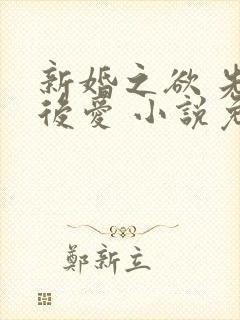 新婚之欲
後愛 小說
鄭新立